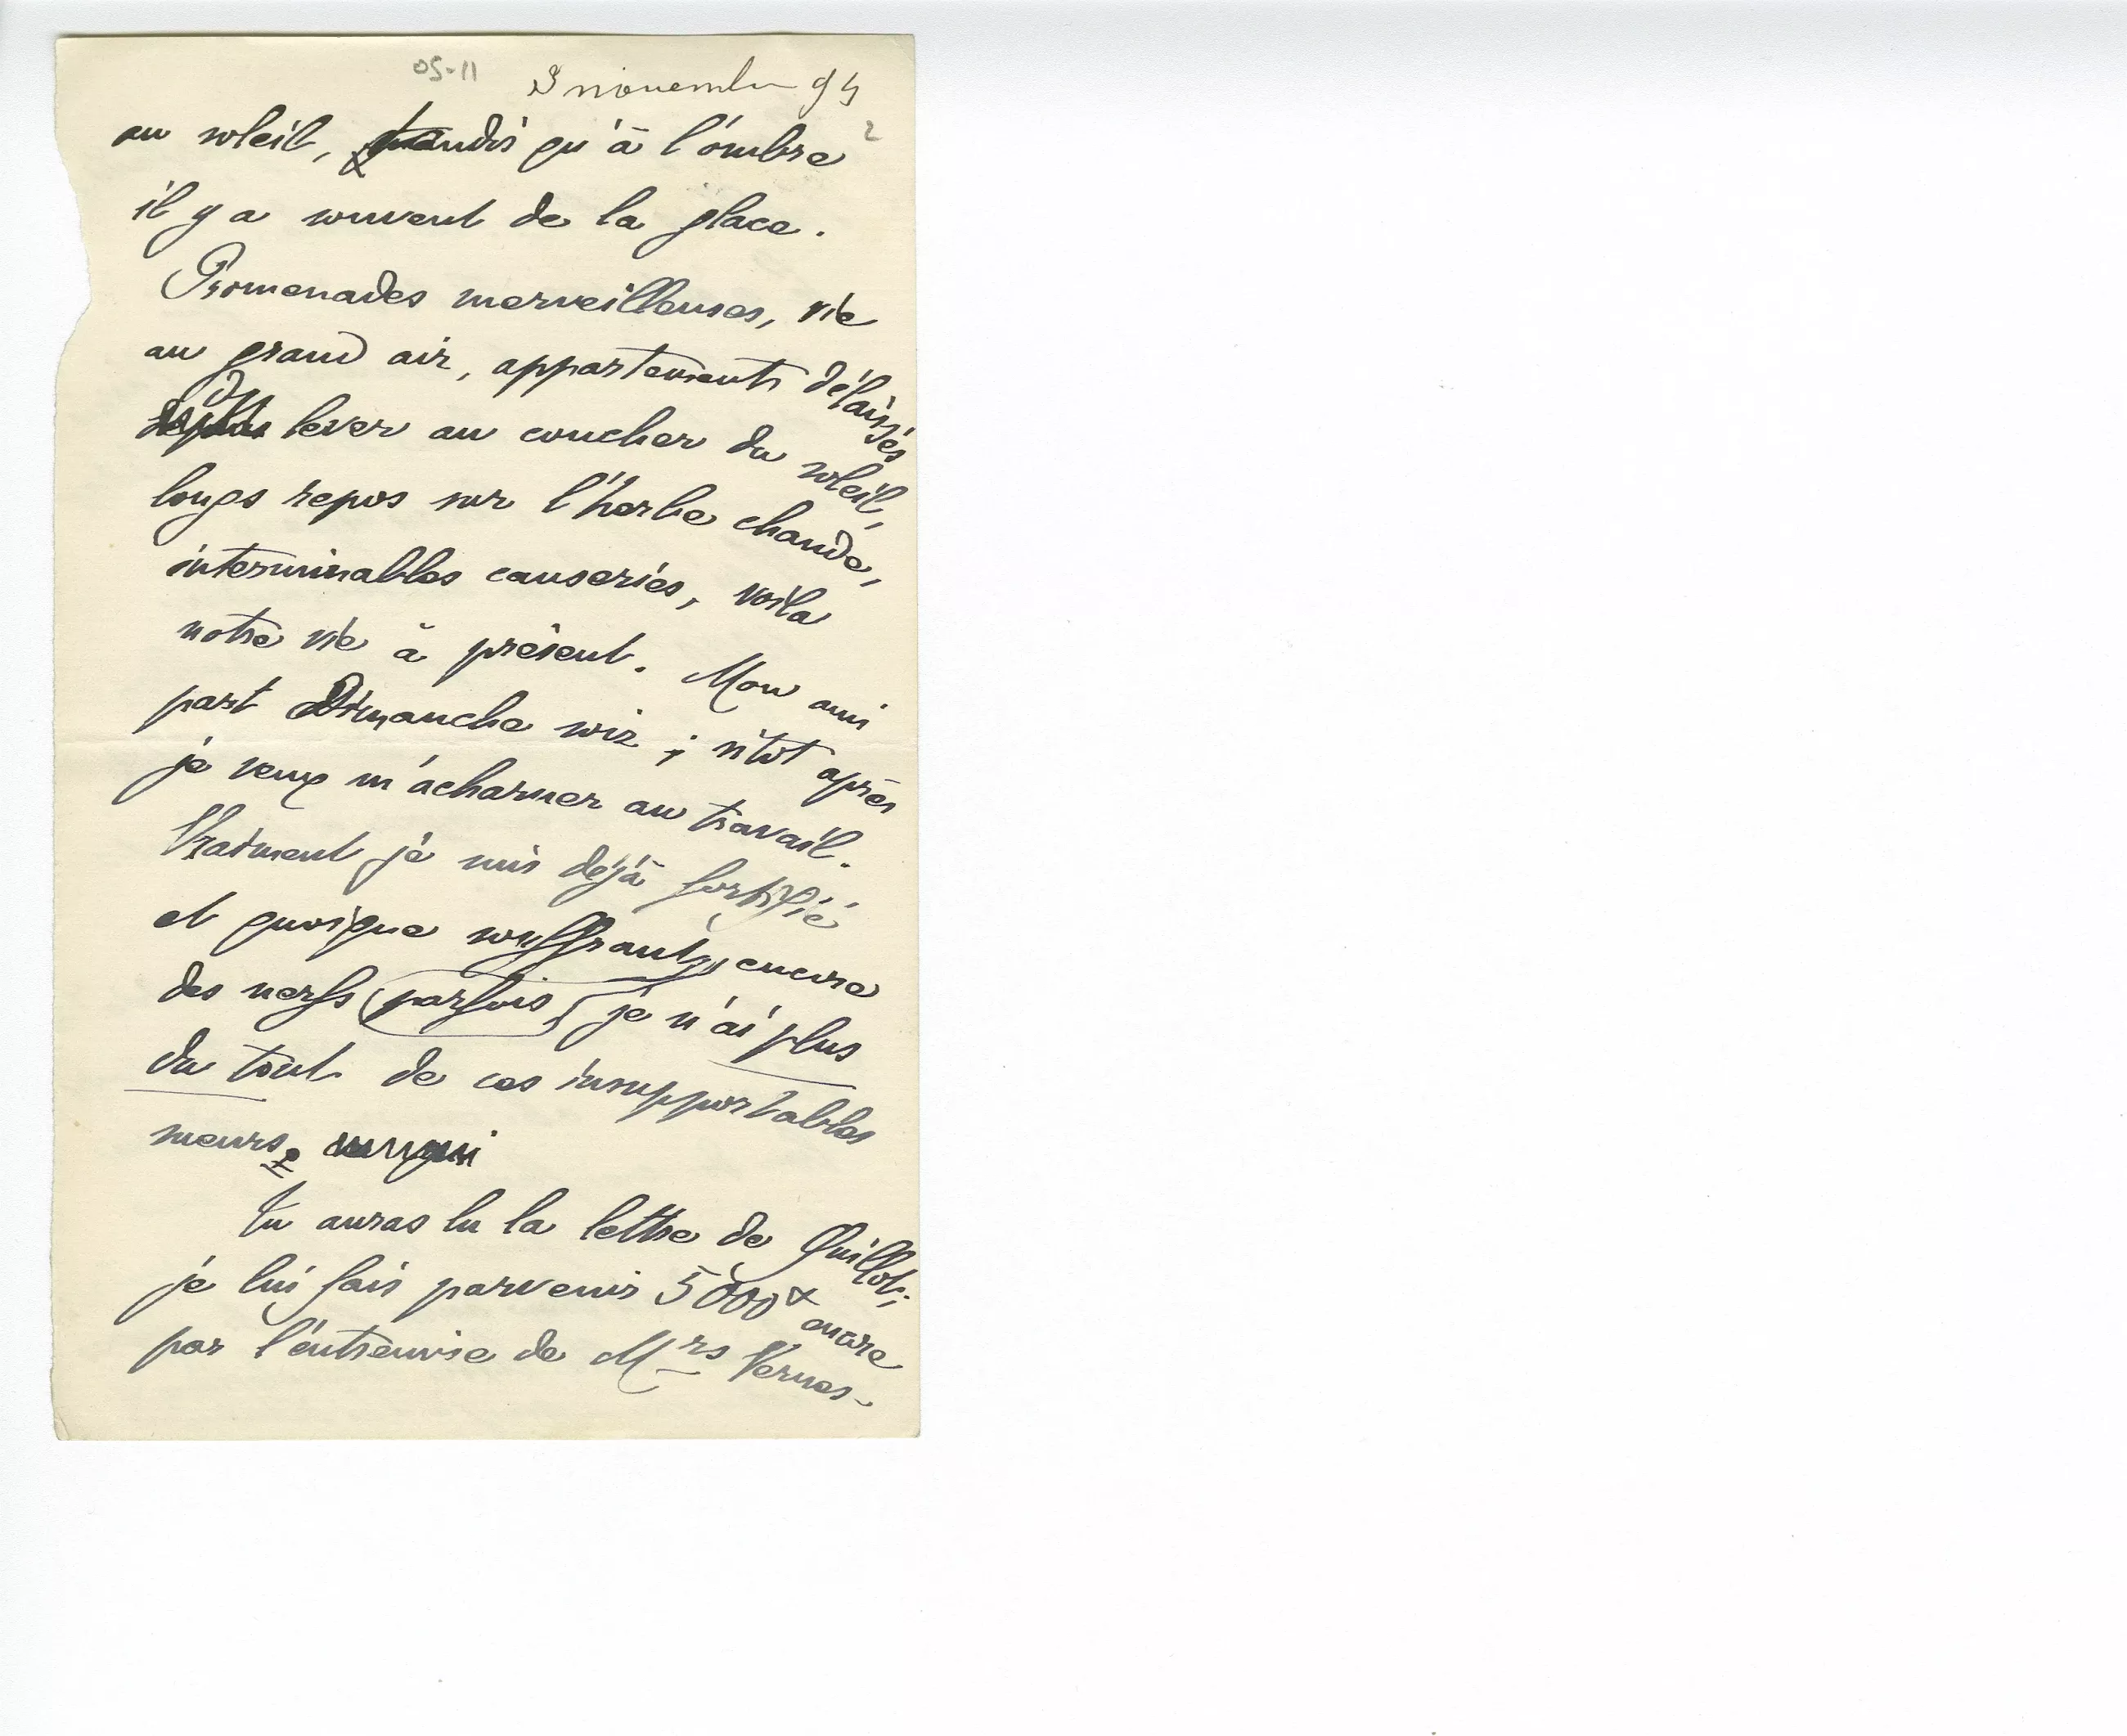 05-11 3 novembre 94
2
au soleil, tandis qu'à l'ombre
il y a souvent de la glace.
Promenades merveilleuses, vie
au grand air, appartements délaissés
du lever au coucher du soleil,
longs repos sur l'herbe chaude,
interminables causeries, voila
notre vie à présent. Mon ami
part Dimanche soir ; sitot après
je veux m'acharner au travail.
Vraiment je suis déjà fortifié
et quoique souffrant encore
des nerfs (parfois) je n'ai plus
du tout de ces insupportables
sueurs.
Tu auras lu la lettre de Guillot;
je lui fais parvenir 5000 encore
par l'entremise de Mrs Vernes-